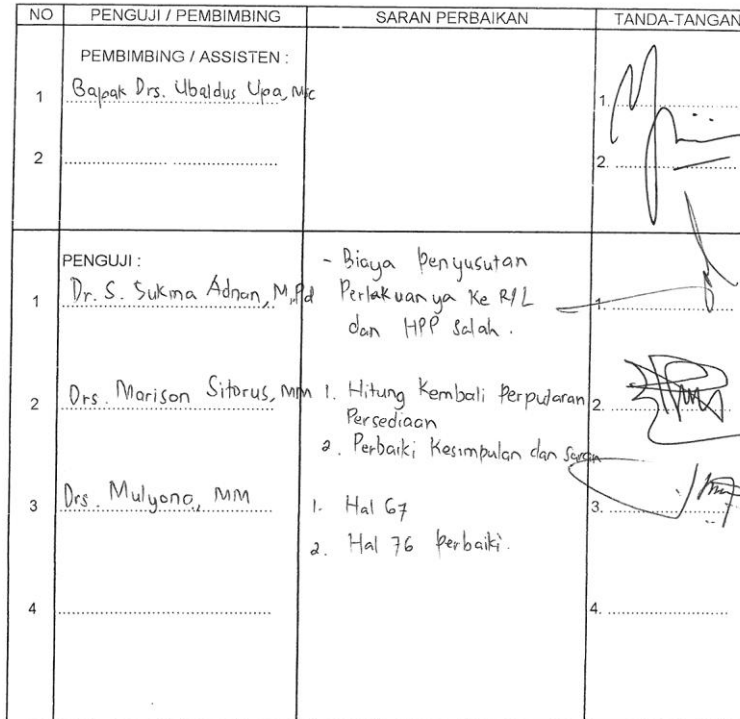 NO PENGUJI / PEMBIMBING SARAN PERBAIKAN TANDA-TANGAN
PEMBIMBING / ASSISTEN :
1 Bapak Drs. Ubaldus Upa, Msc 1.
2 2.
PENGUJI :
1 Dr. S. Sukma Adnan, M.Pd
- Biaya Penyusutan
Perlakuanya Ke R/L
dan HPP Salah.
1.
2 Drs. Marison Sitorus, MM
1. Hitung Kembali Perputaran
Persediaan
2. Perbaiki Kesimpulan dan Saran
2.
3 Drs. Mulyono, MM
1. Hal 67
2. Hal 76 Perbaiki.
3.
4 4.